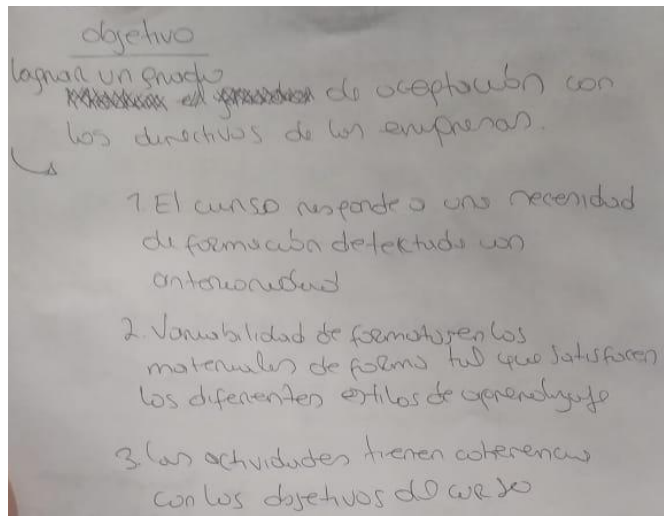 objetivo
lograr un grado
de aceptación con
los directivos de las empresas.
1. El curso responde a una necesidad
de formación detektada con
anterioridad
2. Variabilidad de formatos en los
materiales de forma tal que satisfacen
los diferentes estilos de aprendizaje
3. Las actividades tienen coherencia
con los objetivos del curso